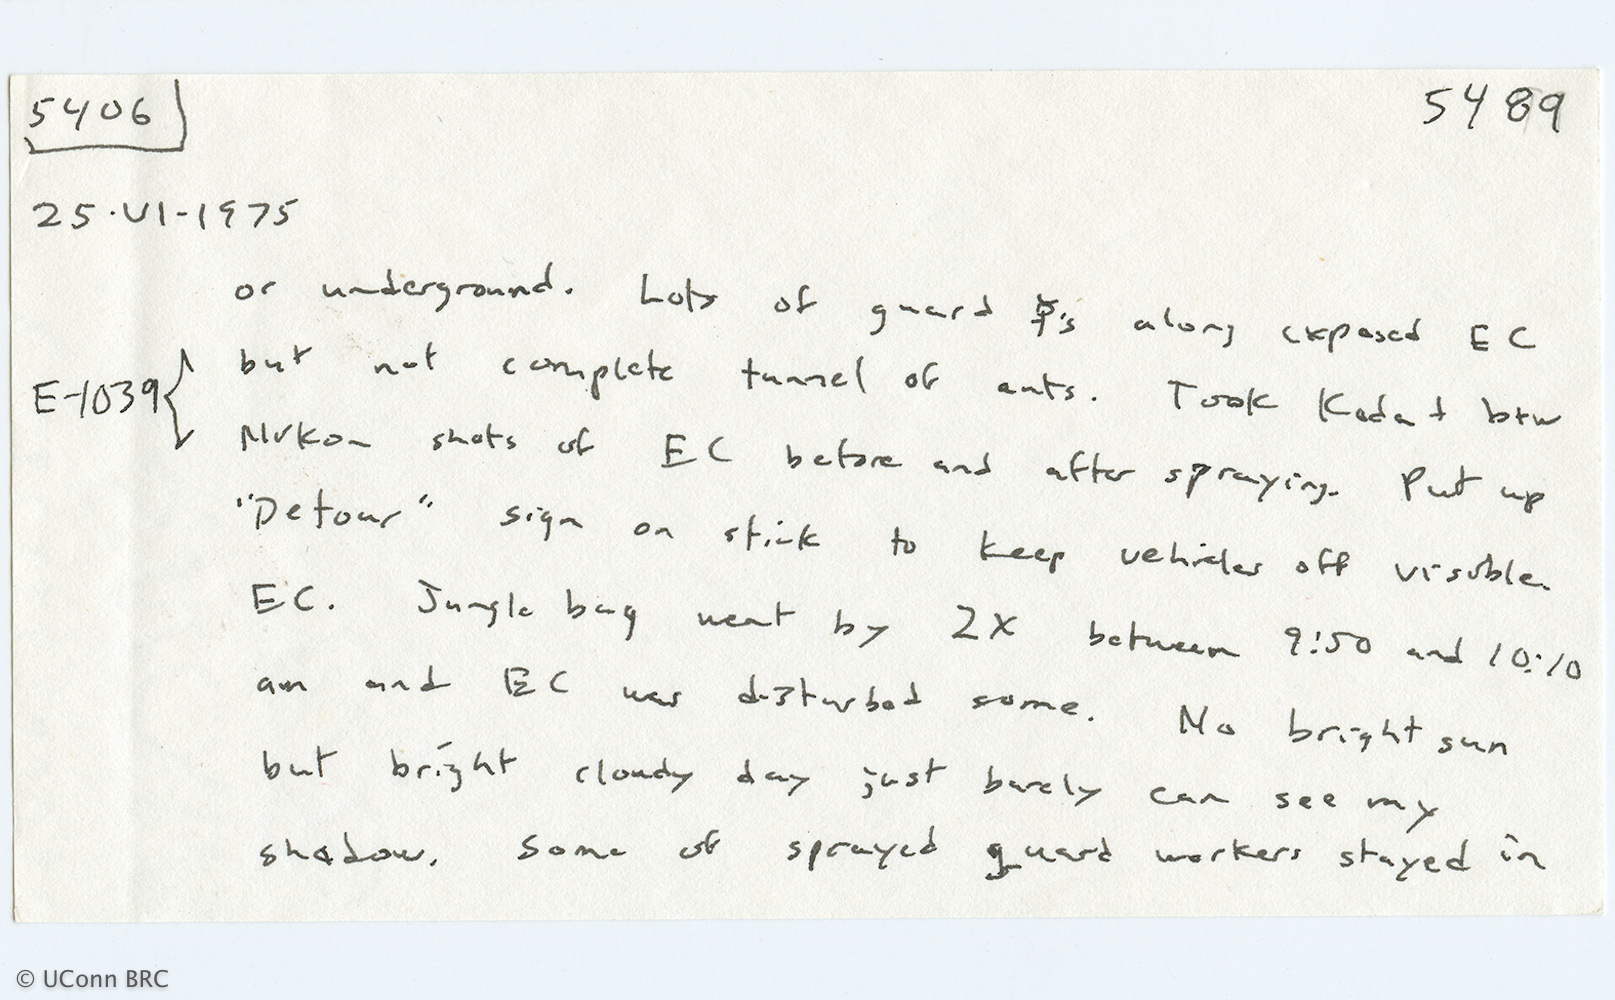 5406
5489
25·VI-1975
or underground. Lots of guard ☿'s along exposed EC
but not complete tunnel of ants. Took Koda + b+w
E-1039 {
Nikon shots of EC before and after spraying. Put up
"Detour" sign on stick to keep vehicles off visible
EC. Jungle bag went by 2X between 9:50 and 10:10
am and EC was disturbed some. No bright sun
but bright cloudy day just barely can see my
shadow. Some of sprayed guard workers stayed in
© UConn BRC